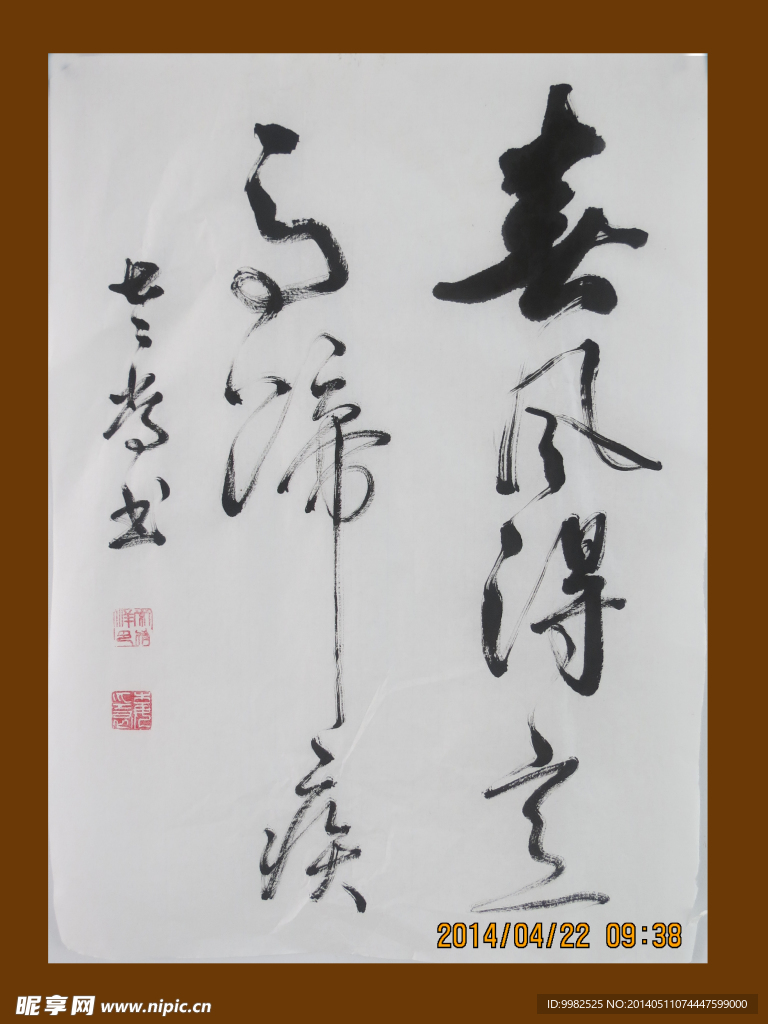 春风得意
马蹄疾
书
2014/04/22 09:38
昵享网 www.nipic.cn
ID:9982525 NO:20140511074447599000